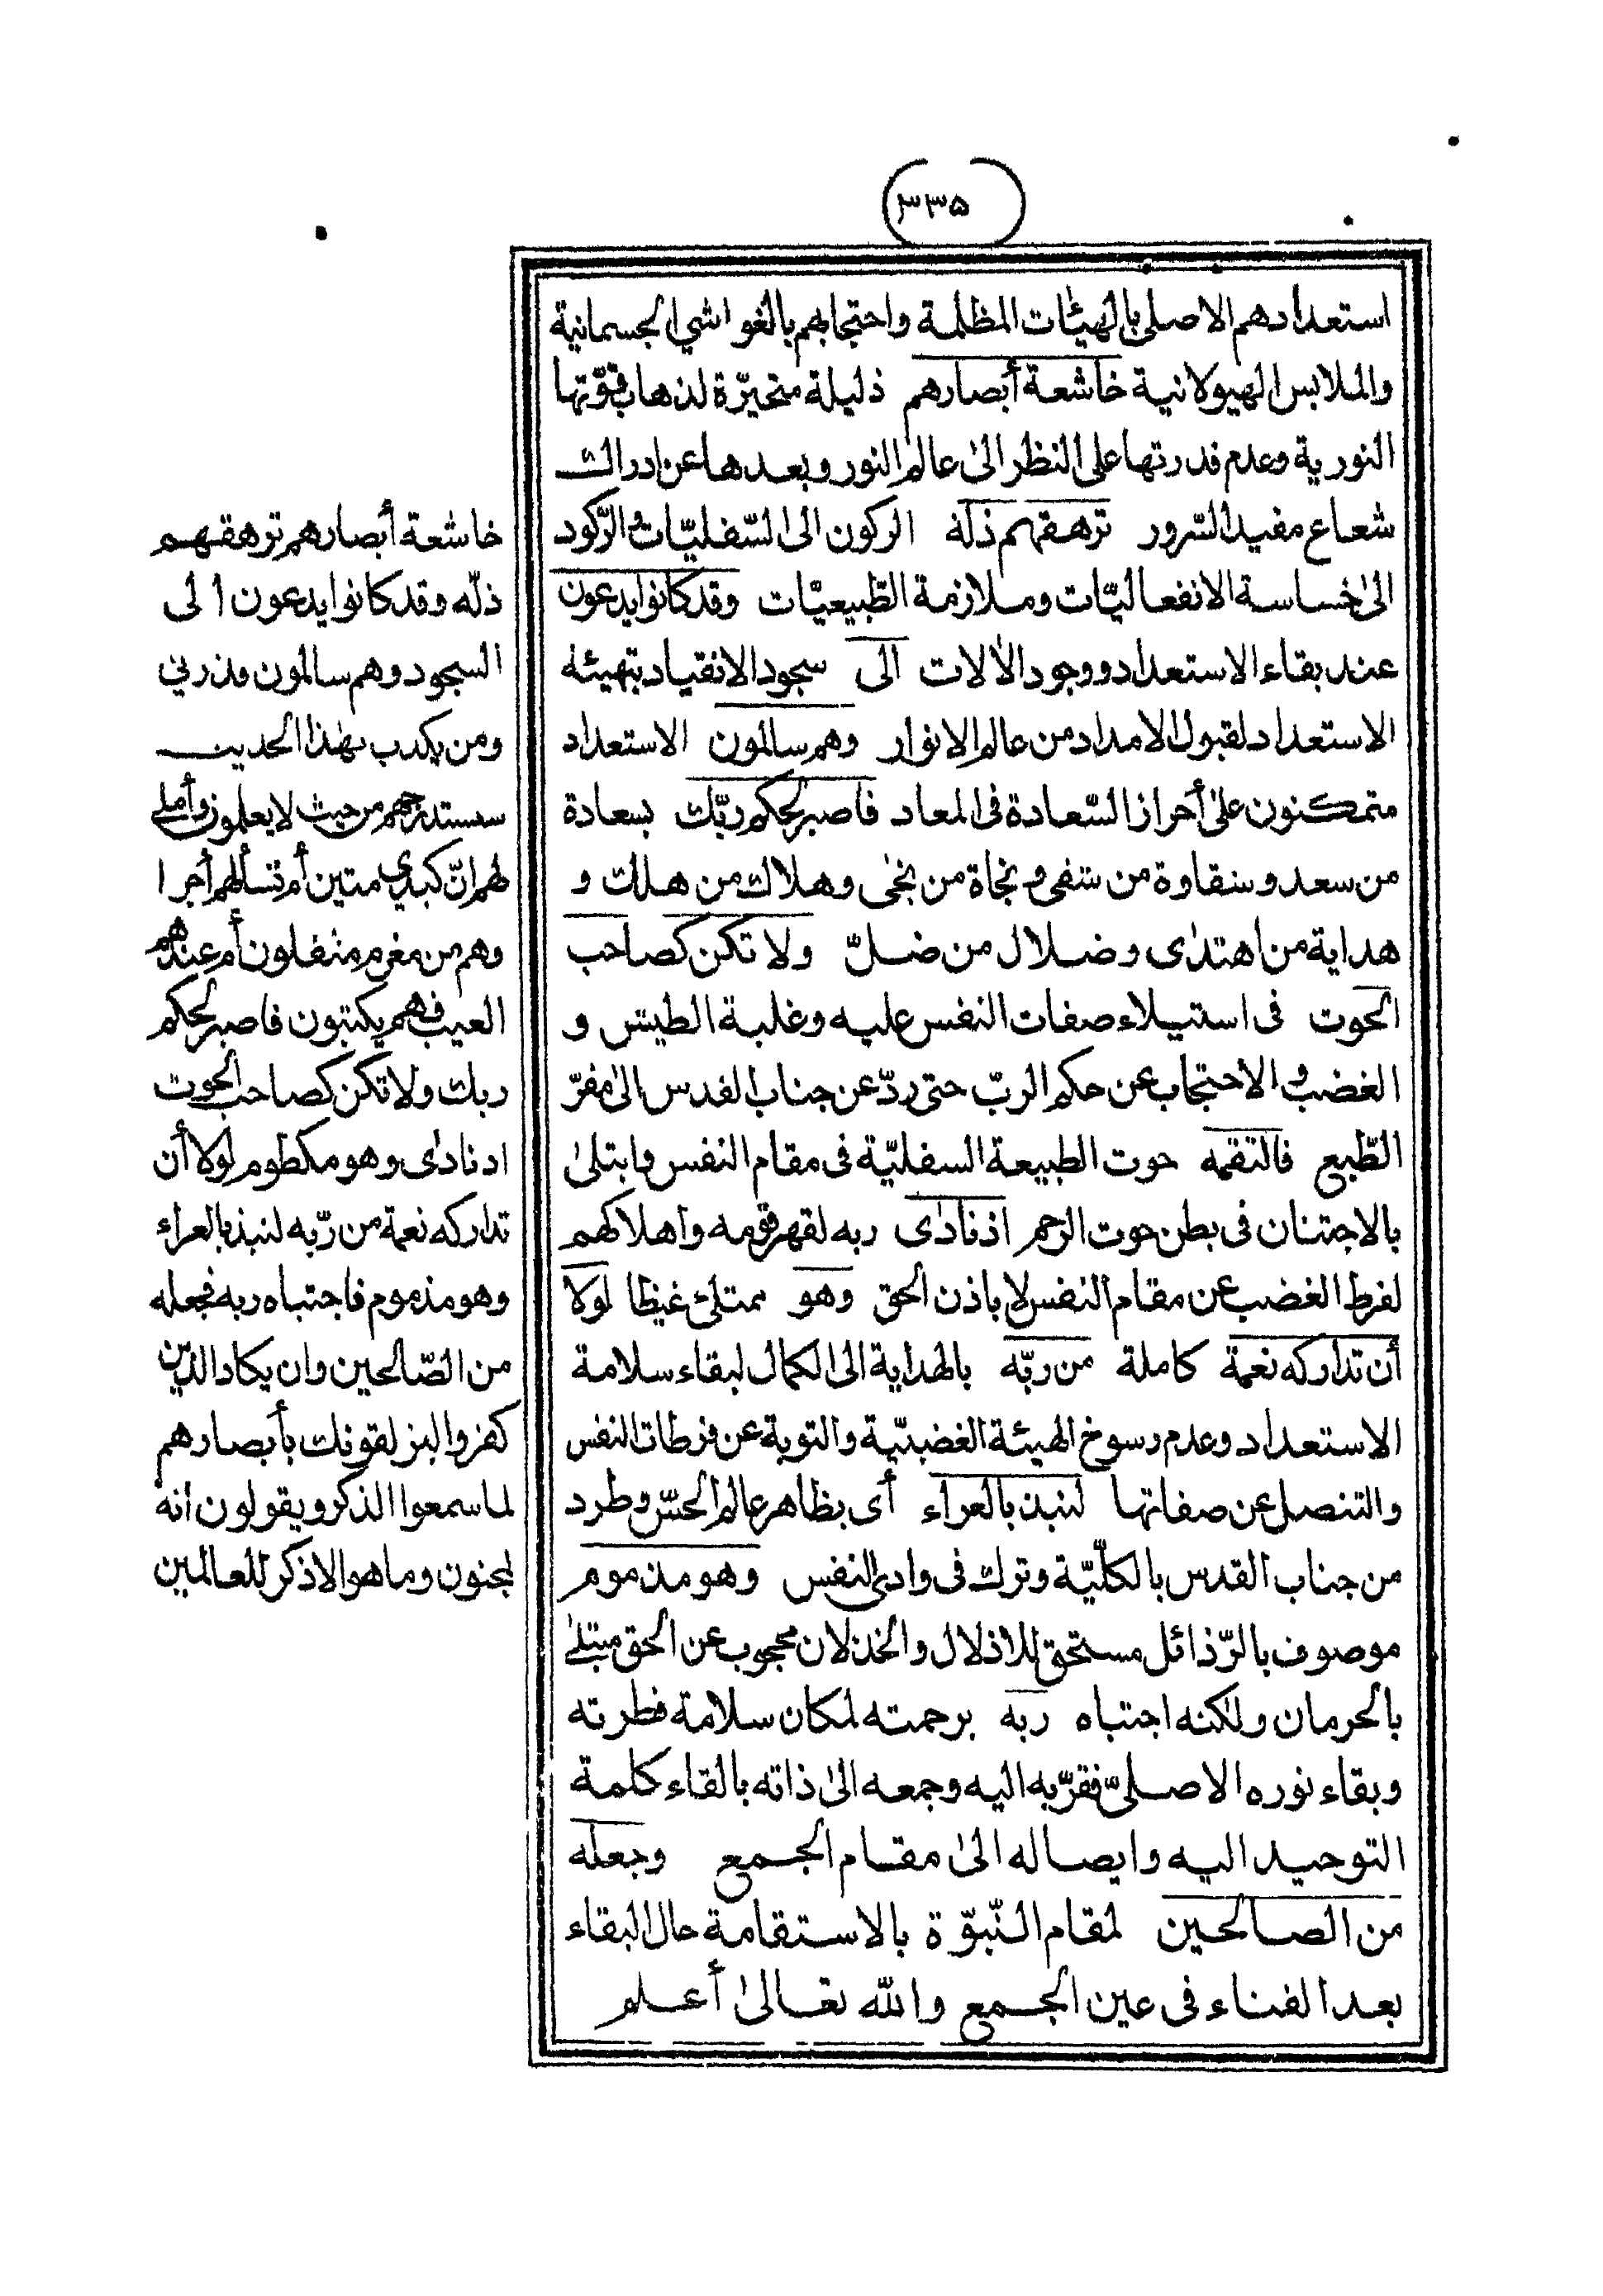 ٣٣٥
استعدادهم الاصلى بالهيئات المظلمة واحتجابهم بالغواشي الجسمانية
والملابس الهيولانية خاشعة أبصارهم ذليلة متحيّرة لذهاب قوّتها
النورية وعدم قدرتها على النظر الى عالم النور وبعدها عن ادراك
شعاع مفيد السّرور ترهقهم ذلة الركون الى السّفليّات والرّكود
الى خساسة الانفعاليّات وملازمة الطّبيعيّات وقد كانوا يدعون
عند بقاء الاستعداد ووجود الآلات الى سجود الانقياد بتهيئة
الاستعداد لقبول الامداد من عالم الانوار وهم سالمون الاستعداد
متمكنون على أحراز السّعادة فى المعاد فاصبر لحكم ربّك بسعادة
من سعد وشقاوة من شقى ونجاة من نجى وهلاك من هلك و
هداية من اهتدى وضلال من ضلّ ولا تكن كصاحب
الحوت فى استيلاء صفات النفس عليه وغلبة الطيش و
الغضب والاحتجاب عن حكم الربّ حتى ردّ عن جناب القدس الى مقرّ
الطّبع فالتقمه حوت الطبيعة السفليّة فى مقام النفس وابتلى
بالاجتنان فى بطن حوت الرحم اذ نادى ربه لقهر قومه واهلاكهم
لفرط الغضب عن مقام النفس لا باذن الحق وهو ممتلئ غيظا لولا
أن تداركه نعمة كاملة من ربّه بالهداية الى الكمال لبقاء سلامة
الاستعداد وعدم رسوخ الهيئة الغضبيّة والتوبة عن فرطات النفس
والتنصل عن صفاتها لنبذ بالعراء أى بظاهر عالم الحسّ وطرد
من جناب القدس بالكلّيّة وترك فى وادى النفس وهو مذموم
موصوف بالرّذائل مستحق للاذلال والخذلان محجوب عن الحق مبتلى
بالحرمان ولكنه اجتباه ربه برحمته لمكان سلامة فطرته
وبقاء نوره الاصلىّ فقرّبه اليه وجمعه الى ذاته بالقاء كلمة
التوحيد اليه وايصاله الى مقام الجمع وجعله
من الصالحين لمقام النّبوّة بالاستقامة حال البقاء
بعد الفناء فى عين الجمع والله تعالى أعلم
خاشعة أبصارهم ترهقهم
ذلّه وقد كانوا يدعون الى
السجود وهم سالمون فذرني
ومن يكذب بهذا الحديث
سستدرجهم من حيث لا يعلمون وأملي
لهم انّ كيدي متين أم تسألهم أجرا
وهم من مغرم مثقلون أم عندهم
الغيب فهم يكتبون فاصبر لحكم
ربك ولا تكن كصاحب الحوت
اذ نادى وهو مكظوم لولا أن
تداركه نعمة من ربّه لنبذ بالعراء
وهو مذموم فاجتباه ربه فجعله
من الصّالحين وان يكاد الذين
كفروا ليزلقونك بأبصارهم
لما سمعوا الذكر ويقولون انه
لمجنون وما هو الا ذكر للعالمين